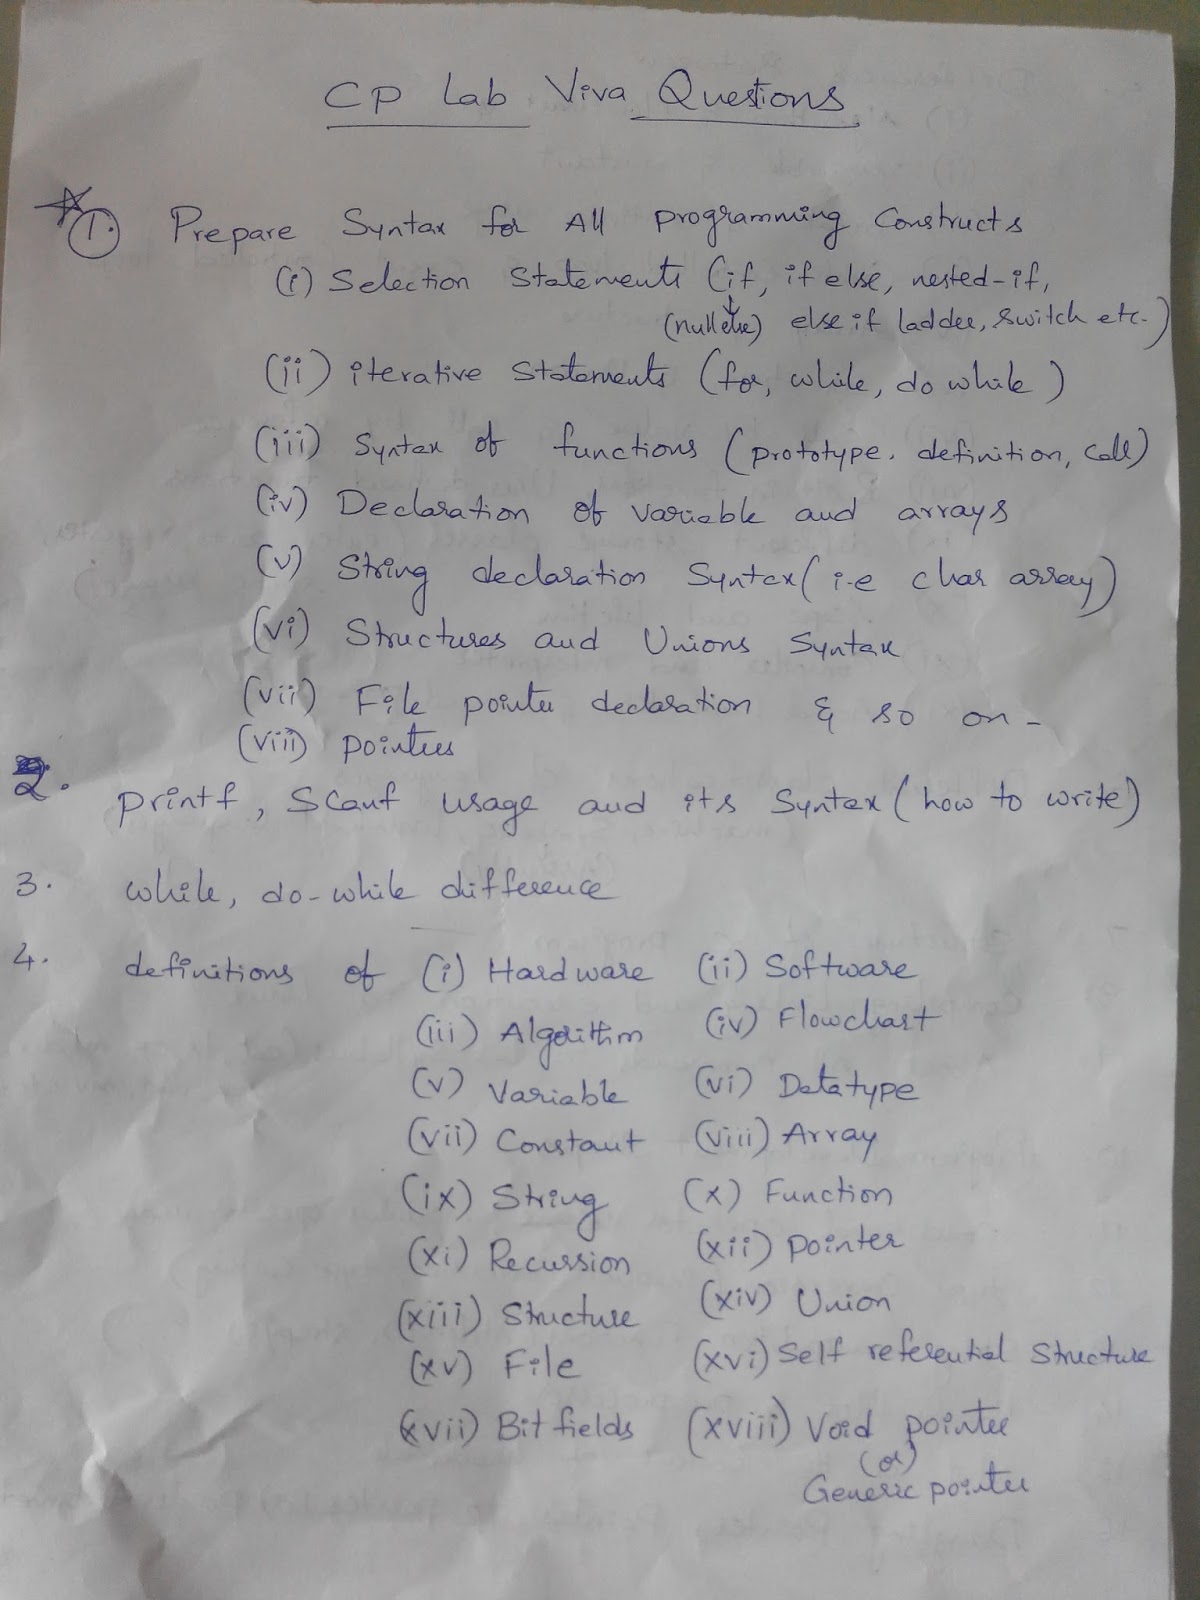 CP Lab Viva Questions
1. Prepare Syntax for All programming Constructs
(i) Selection Statements (if, if else, nested-if,
(null else) else if ladder, switch etc.)
(ii) iterative Statements (for, while, do while)
(iii) Syntax of functions (prototype, definition, call)
(iv) Declaration of variable and arrays
(v) String declaration Syntax (i.e char array)
(vi) Structures and Unions Syntax
(vii) File pointer declaration & so on -
(viii) pointers
2. printf, scanf usage and its Syntax (how to write)
3. while, do-while difference
4. definitions of (i) Hardware (ii) Software
(iii) Algorithm (iv) Flowchart
(v) Variable (vi) Datatype
(vii) Constant (viii) Array
(ix) String (x) Function
(xi) Recurssion (xii) pointer
(xiii) Structure (xiv) Union
(xv) File (xvi) Self referential Structure
(xvii) Bit fields (xviii) Void pointer
(or)
Generic pointer